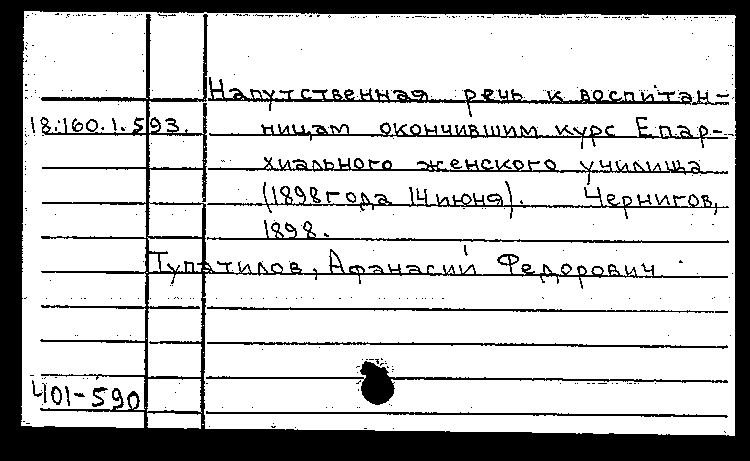 Напутственная речь к воспитан-
18.160.1.593. ницам окончившим курс Епар-
хиального женского училища
(1898 года 14 июня). Чернигов,
1898.
Тупатилов, Афанасий Федорович
401-590